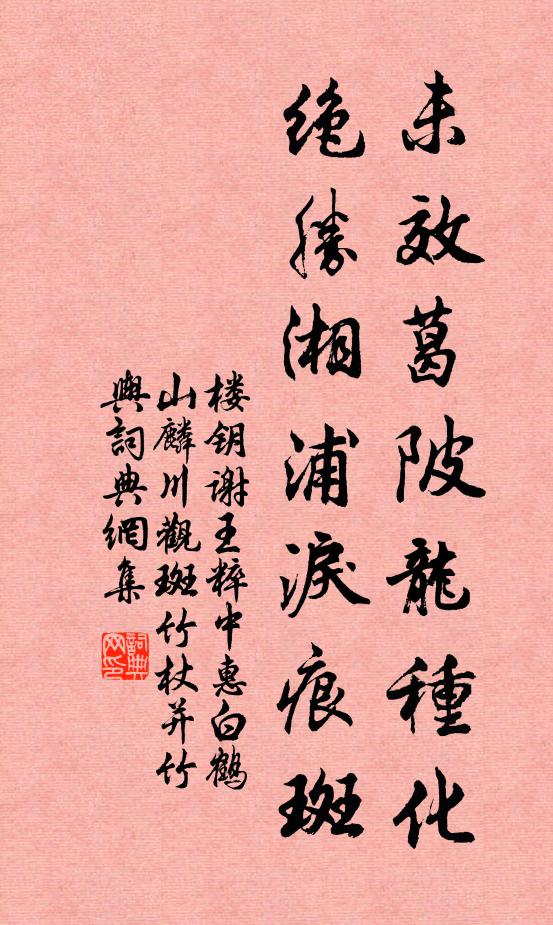 未效葛陂龍種化
绝勝湘浦淚痕斑
楼钥謝王粹中惠白鶴
山麟川觀斑竹杖并竹
輿詞典網集
詞典
网印